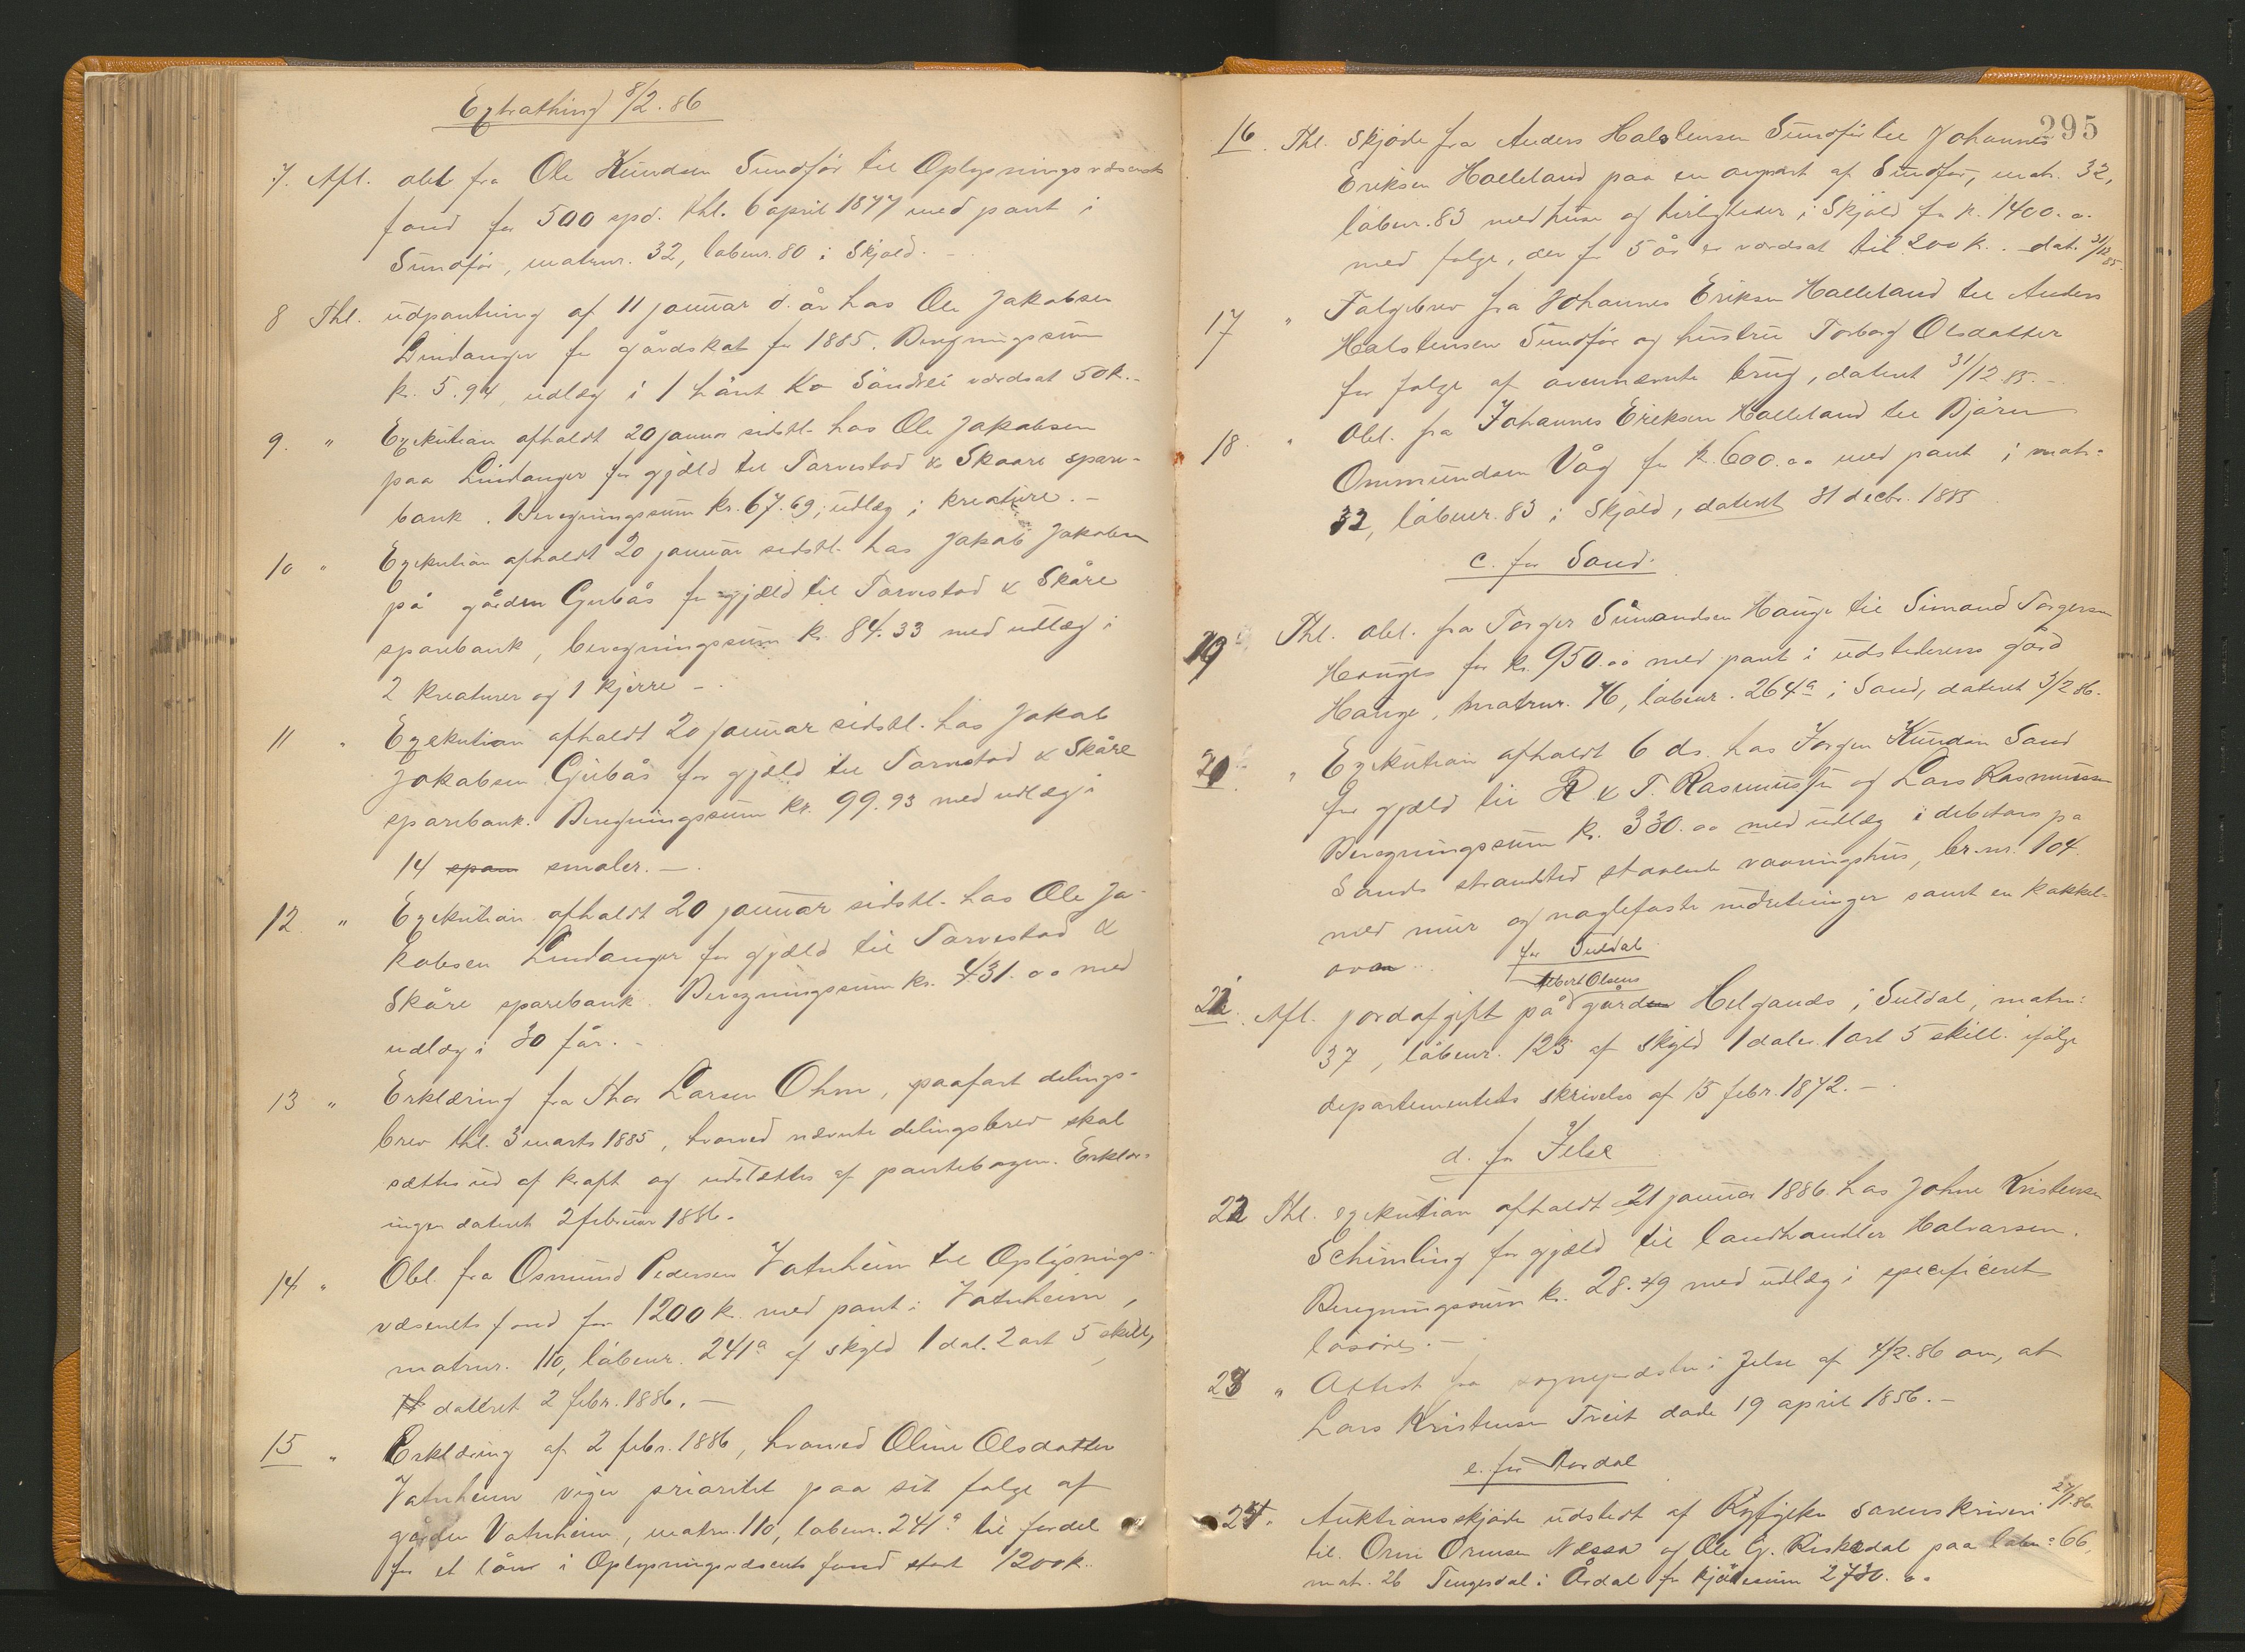 Extrathing 8/2. 86
7. Afl. obl. fra Ole Knudsen Sundför til Oplysningsvæsenets
fond for 500 spd. thl. 6 april 1877 med pant i
Sundför, matrnr. 32, løbenr. 80 i Skjold. -
8 Thl. udpantning af 11 januar d. år hos Ole Jakobsen
Lindanger for gårdskat for 1885. Beregningssum
kr. 5.94, udlæg i 1 hånt ko Söndrei værdsat 50 k. -
9. " Exekution afholdt 20 januar sidstl. hos Ole Jakobsen
paa Lindanger for gjæld til Torvestad & Skaare spare-
bank. Beregningssum kr. 67.69, udlæg i kreature. -
10 " Exekution afholdt 20 januar sidstl. hos Jakob Jakobsen
på gården Gribås for gjæld til Torvestad & Skåre
sparebank, beregningssum kr. 84.33 med udlæg i
2 kreaturer og 1 kjerre -
11 " Exekution afholdt 20 januar sidstl. hos Jakob
Jakobsen Gribås for gjæld til Torvestad & Skåre
sparebank. Beregningssum kr. 99.93 med udlæg i
14 spam smaler. -
12. " Exekution afholdt 20 januar sidstl. hos Ole Ja-
kobsen Lindanger for gjæld til Torvestad &
Skåre sparebank. Beregningssum kr. 431.00 med
udlæg i 30 får. -
13 " Erklæring fra Thor Larsen Ohm, paafört delings-
brev thl. 3 marts 1885, hvorved nævnte delingsbrev skal
sættes ud af kraft og udslettes af pantebogen. Erklær-
ingen dateret 2 februar 1886.
14 " Obl. fra Osmund Pedersen Vatnheim til Oplysnings-
væsenets fond for 1200 k. med pant i Vatnheim,
matrnr. 110, løbenr. 241a af skyld 1 dal. 2 ort 5 skill,
dateret 2 febr. 1886. -
15 " Erklæring af 2 febr. 1886, hvorved Oline Olsdatter
Vatnheim viger prioritet paa sit folge af
gården Vatnheim, matrn. 110, løbenr. 241a til fordel
for et lån i Oplysningsvæsenets fond stort 1200 k.
295
16. Thl. Skjöde fra Anders Halstensen Sundför til Johannes
Eriksen Haaeland paa en anpart af Sundför, matr. 32,
löbenr. 83 med huse og herligheder i Skjold for k. 1400.00
med folge, der for 5 år er værdsat til 200 k. - dat. 31/12 85.
17 " Folgebrev fra Johannes Eriksen Haaeland til Anders
Halstensen Sundför og hustru Torborg Olsdatter
for folge af ovennævnte brug, dateret 31/12 85. -
18. " Obl. fra Johannes Eriksen Haaeland til Björn
Ommundsen Våg for k. 600.00 med pant i matr.
32, löbenr. 83 i Skjold, dateret 31 decbr. 1885
c. for Sand.
19 Thl. obl. fra Torger Simondsen Hauge til Simond Torgersen
Hauges for kr. 950.00 med pant i udstederens gård
Hauge, matrnr. 16, löbenr. 264a i Sand, dateret 3/2 86.
20 " Exekution afholdt 6 ds. hos Jorgen Knudsen Sand
for gjæld til R. & T. Rasmussen og Lars Rasmussen
Beregningssum kr. 330.00 med udlæg i debitors på
Sands strandsted staaende vaaningshus, br.nr. 104.
med mur og naglefaste indretninger samt en kakkel-
ovn.
for Suldal
Albert Olsens
21. Afl. jordafgift på gården Helgands i Suldal, matrn.
37, löbenr. 123 af skyld 1 daler 1 ort 5 skill. ifölge
departementets skrivelse af 15 febr. 1872. -
d. for Jelse
22 Thl. exekution afholdt 21 januar 1886 hos Johne Kristensen
Schimling for gjæld til landhandler Halvorsen.
Beregningssum kr. 28.49 med udlæg i specificeret
lösöre. -
23 " Attest fra sognepræsten i Jelse af 4/2. 86 om, at
Lars Kristensen Treit döde 19 april 1856. -
e. for Aardal
24. Auktionsskjöde udstedt af Ryfylke sorenskriveri 27/1. 86
til Orm Ormsen Nessa og Ole G. Riskedal paa löbn: 66,
matr. 26 Tengesdal i Årdal for kjöbesum 2730.00